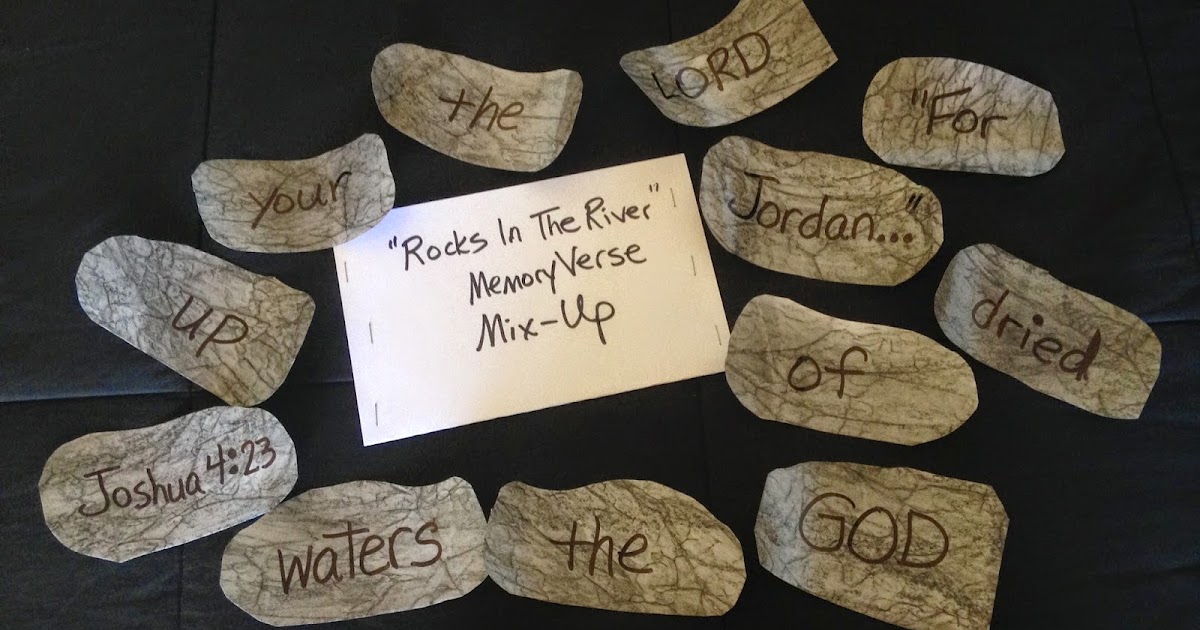 the
LORD
"For
your
"Rocks In The River"
Memory Verse
Mix-Up
Jordan..."
up
dried
of
Joshua 4:23
waters
the
GOD